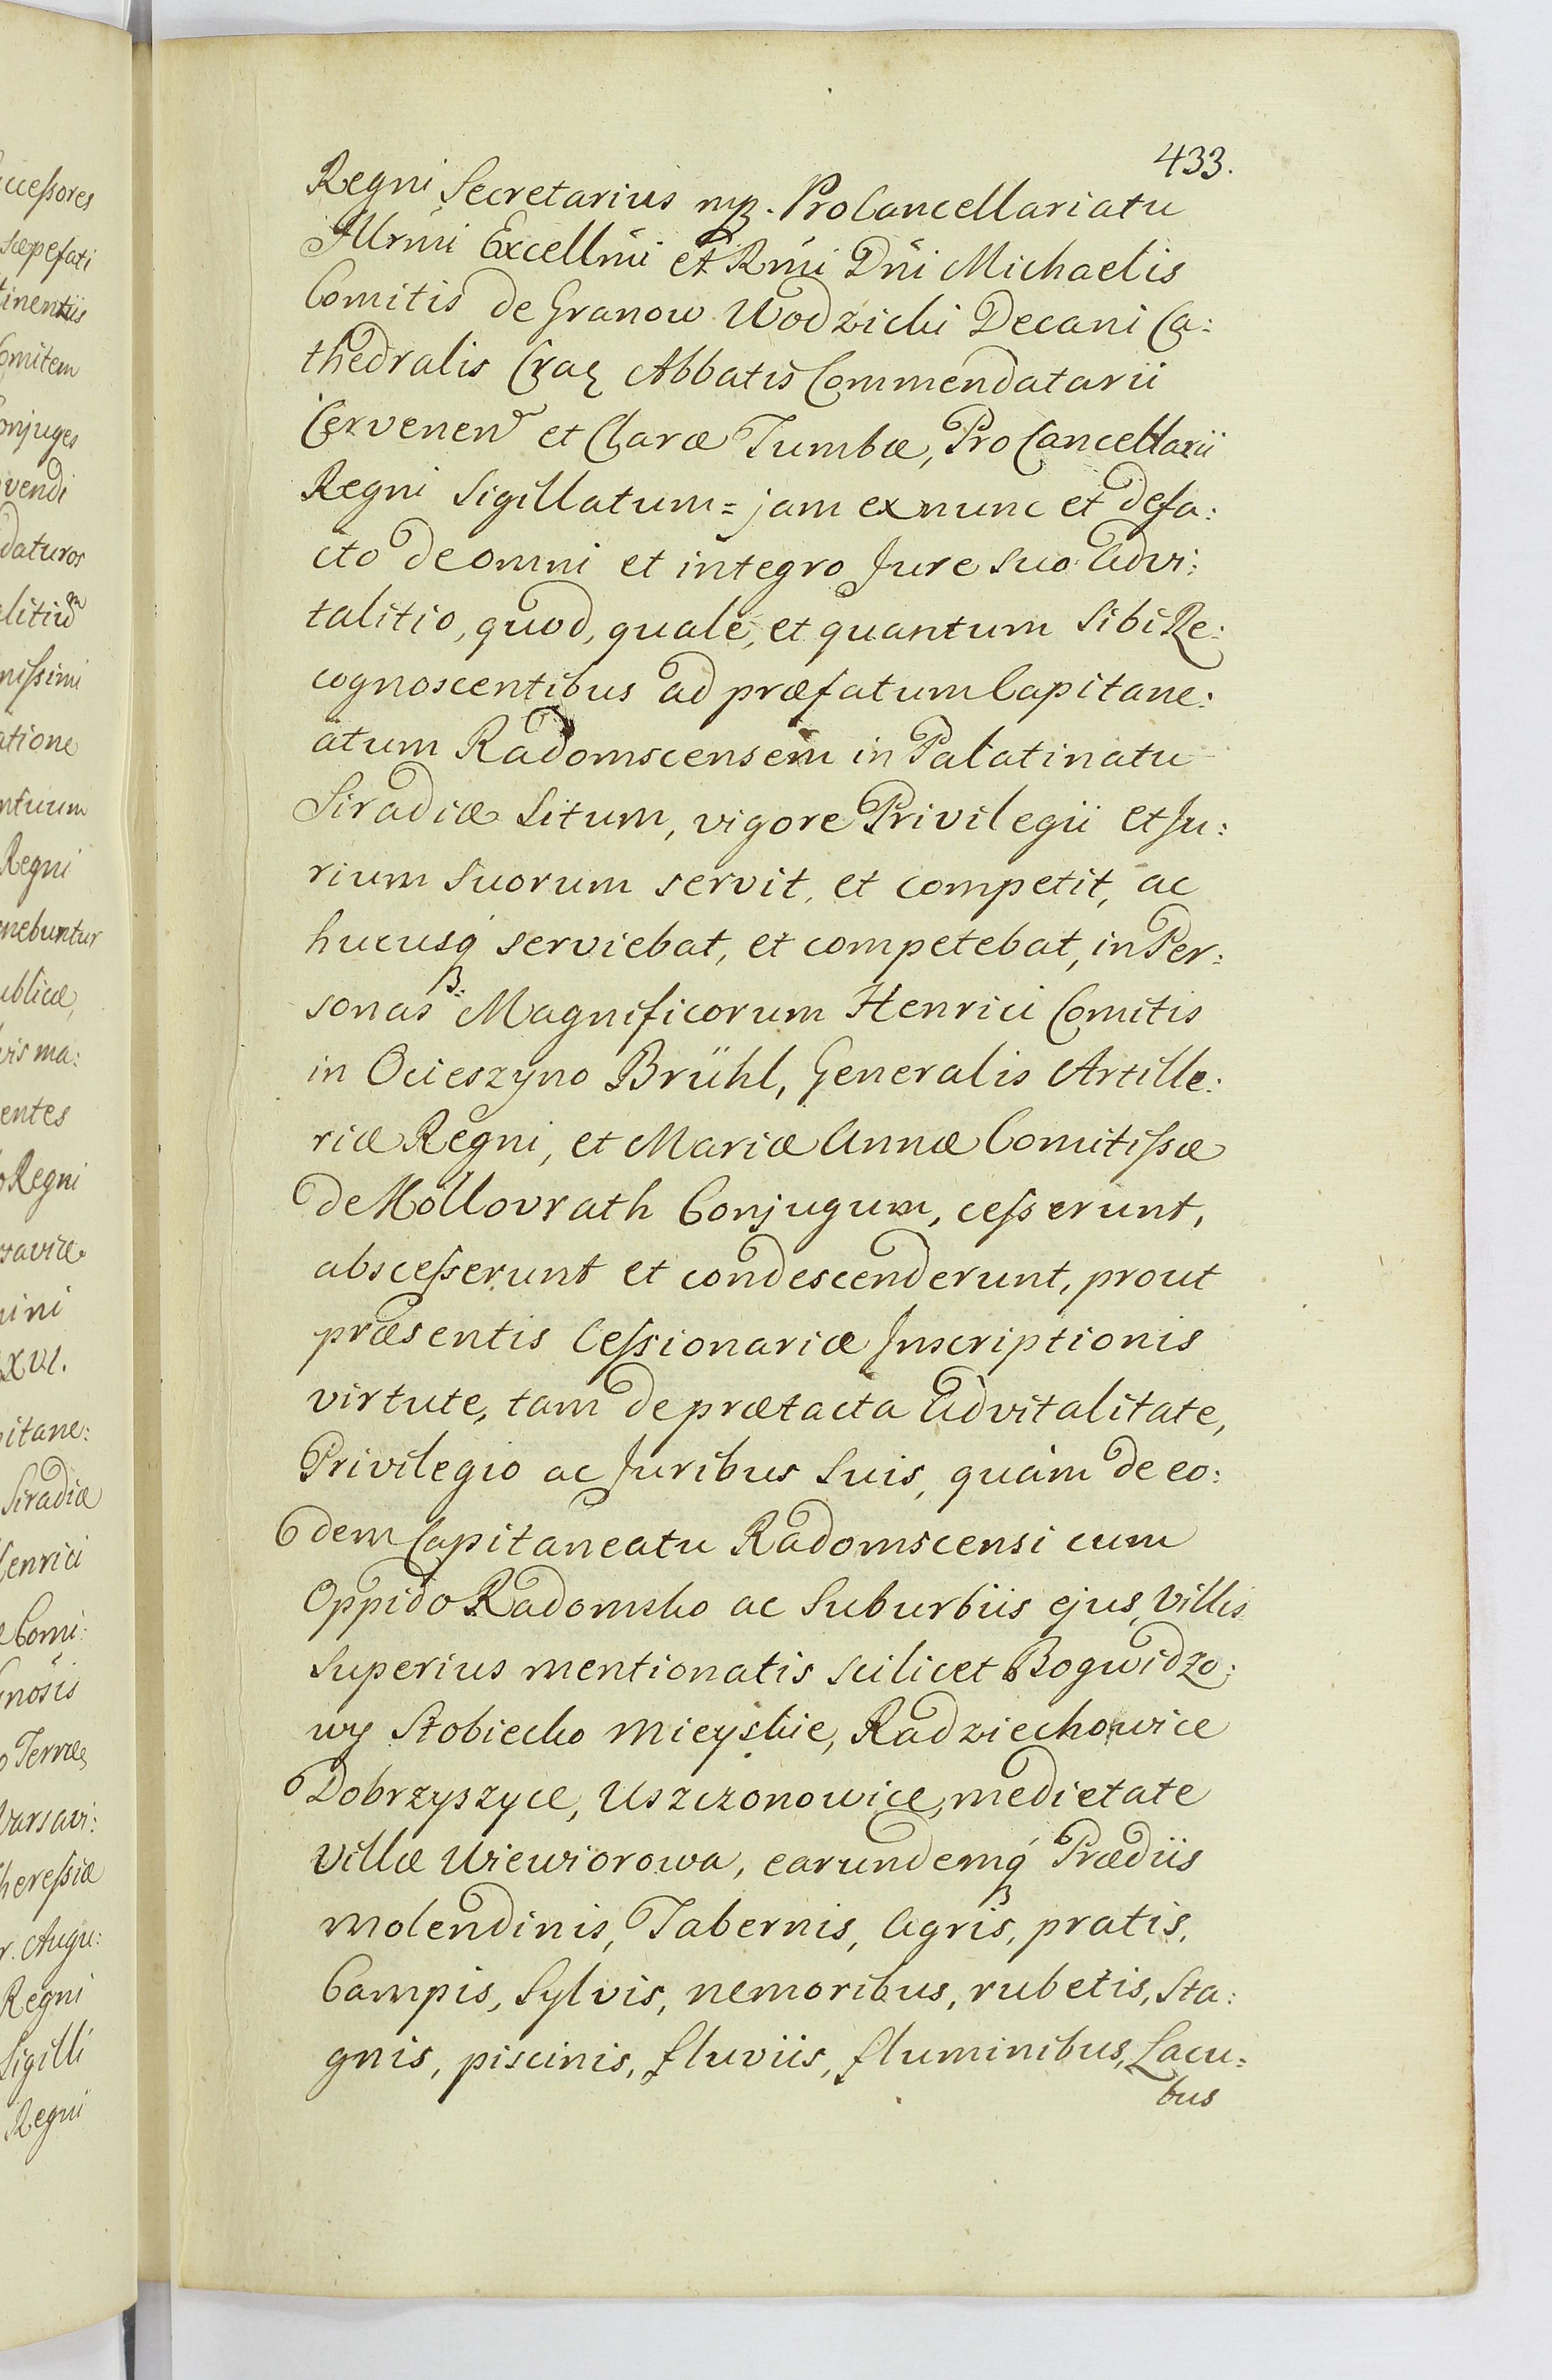 433.
Regni Secretarius mp. ProCancellariatu
Illrmi Excellmi et Rmi Dni Michaelis
Comitis de Granow Wodzicki Decani Ca:
thedralis Crac Abbatis Commendatarii
Cervenen et Claræ Tumbæ, ProCancellarii
Regni Sigillatum = jam ex nunc et defa:
cto de omni et integro Jure suo Advi:
talitio, quod, quale, et quantum Sibi Re:
cognoscentibus ad præfatum Capitane:
atum Radomscensem in Palatinatu
Siradiæ Situm, vigore Privilegii et Ju:
rium Suorum servit, et competit, ac
hucusq serviebat, et competebat, in Per:
sonas Magnificorum Henrici Comitis
in Ocieszyno Brühl, Generalis Artille:
riæ Regni, et Mariæ Annæ Comitissæ
de Kollovrath Conjugum, cesserunt,
abscesserunt et condescenderunt, prout
præsentis Cessionariæ Inscriptionis
virtute, tam de prætacta Advitalitate,
Privilegio ac Juribus Suis, quàm de eo:
dem Capitaneatu Radomscensi cum
Oppido Radomsko ac Suburbiis ejus, Villis
superius mentionatis scilicet Bogwidzo:
wy Stobiecko Mieyskie, Radziechowice
Dobrzyszyce, Uszczonowice, medietate
Villæ Wiewiorowa, earundemq Prædiis
Molendinis, Tabernis, Agris, pratis,
Campis, Sylvis, nemoribus, rubetis, Sta:
gnis, piscinis, fluviis, fluminibus, Lacu:
bus